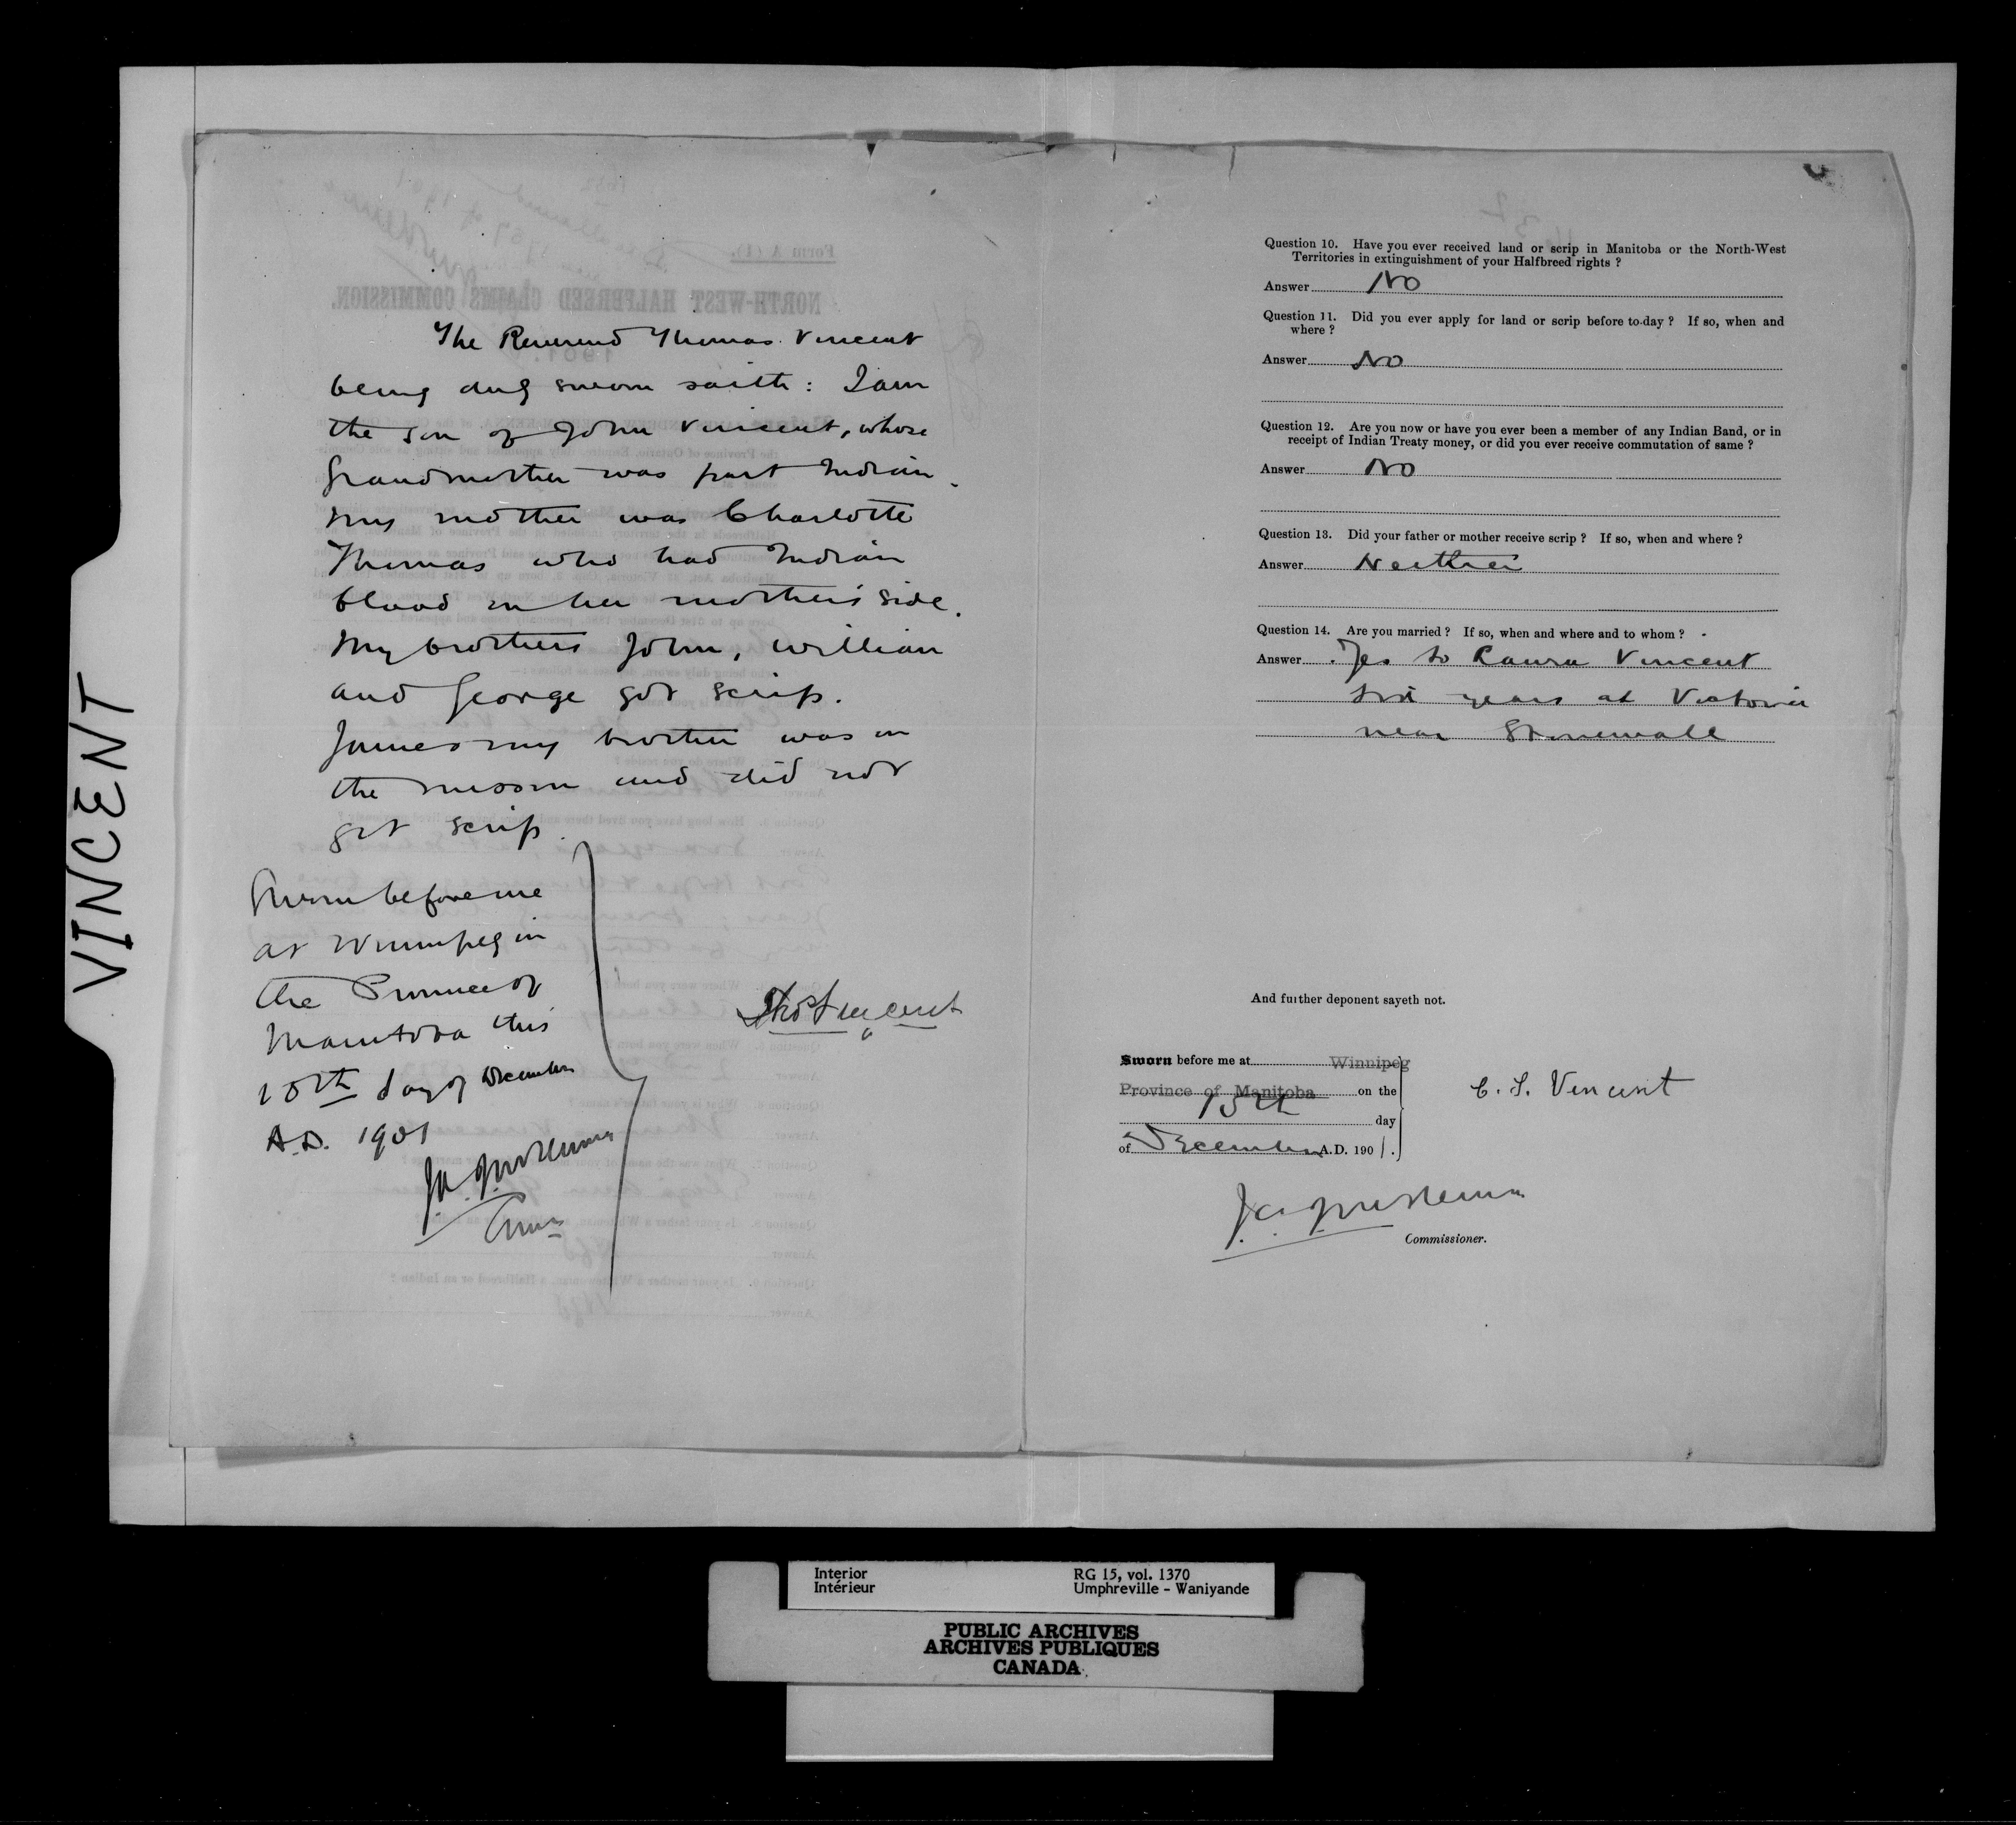 VINCENT
The Reverend Thomas Vincent
being duly sworn saith: I am
the son of John Vincent, whose
Grandmother was part Indian.
My mother was Charlotte
Thomas who had Indian
blood on her mother's side.
My brothers John, William
and George got scrip.
James my brother was in
the mission and did not
get scrip.
Sworn before me
at Winnipeg in
the Province of
Manitoba this
day of December
A.D. 1901
Thos Vincent
Question 10. Have you ever received land or scrip in Manitoba or the North-West
Territories in extinguishment of your Halfbreed rights ?
Answer No
Question 11. Did you ever apply for land or scrip before to-day ? If so, when and
where ?
Answer No
Question 12. Are you now or have you ever been a member of any Indian Band, or in
receipt of Indian Treaty money, or did you ever receive commutation of same ?
Answer No
Question 13. Did your father or mother receive scrip ? If so, when and where ?
Answer Neither
Question 14. Are you married ? If so, when and where and to whom ?
Answer Yes to Laura Vincent
years at Victoria
near Stonewall
And further deponent sayeth not.
Sworn before me at Winnipeg
Province of Manitoba on the
day
of December A.D. 1901.
C. S. Vincent
Commissioner.
Interior RG 15, vol. 1370
Intérieur Umphreville - Waniyande
PUBLIC ARCHIVES
ARCHIVES PUBLIQUES
CANADA